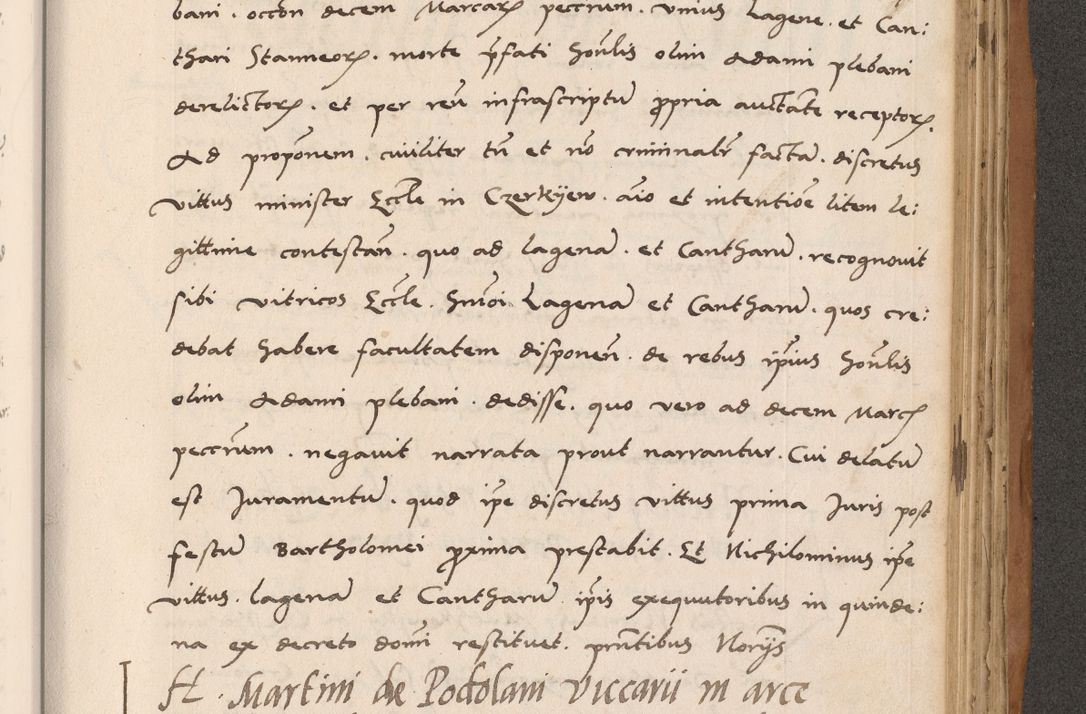 bani . occõn decem Marcarꝝ pecc̃rum . vnius Lagene . et Can:
thari Stanneorꝝ . morte p̃fati hon̄lis olim Adami plebani
derelictorꝝ . et per reũ infrascriptũ p̱pria auctãte receptorꝝ.
Ad propõnem . ciuiliter tñ et nõ criminalr̃ factã . discretus
vittus minister Eccłe in Czerkyew . aĩo et intentiõe litem le:
gittime contestañ . quo ad lagenã . et Cantharũ . recognouit
sibi vitricos Eccłe . hm̃oi Lagenã et Cantharũ . quos cre:
debat habere facultatem disponeñ . de rebus ip̃ius hon̄lis
olim Adami plebani . dedisse . quo vero ad decem Marcꝭ
pecc̃rum . negauit narrata prout narrantur . Cui delatũ
est Juramentũ . quod ip̃e discretus vittus prima Juris post
festũ Bartholomei p̱xima prestabit . Et Nichilominus ip̃e
vittus . lagenã et Cantharũ ip̃is exequutoribus in quinde:
na ex decreto dom̃i restituet . pñtibus Norijs
H . Martini de Podolani viccarii in arce